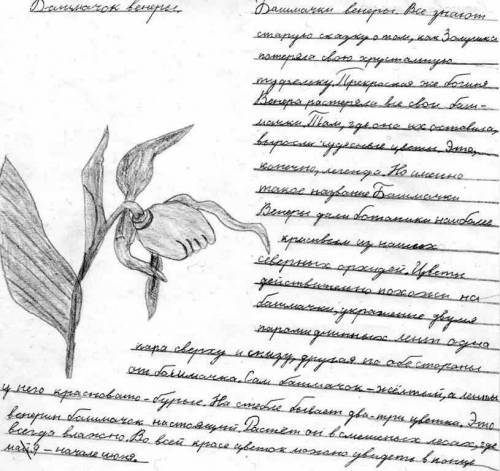 Башмачок венеры.
Башмачки венеры. Все знают
старую сказку о том, как Золушка
потеряла свою хрустальную
туфельку. Прекрасная же богиня
Венера растеряла все свои баш-
мачки. Там, где она их оставила,
выросли чудесные цветы. Это,
конечно, легенда. Но именно
такое название Башмачки
Венеры дали ботаники наиболее
красивым из наших
северных орхидей. Цветы
действительно похожи на
башмачки, украшенные двумя
парами длинных лент одна
пара сверху и снизу, другая по обе стороны
от башмачка. Сам башмачок - жёлтый, а ленты
у него красновато-бурые. На стебле бывает два-три цветка. Это
венерин башмачок настоящий. Растёт он в смешеных лесах, где
всегда влажно. Во всей красе цветок можно увидеть в конце
мая - начале июня.